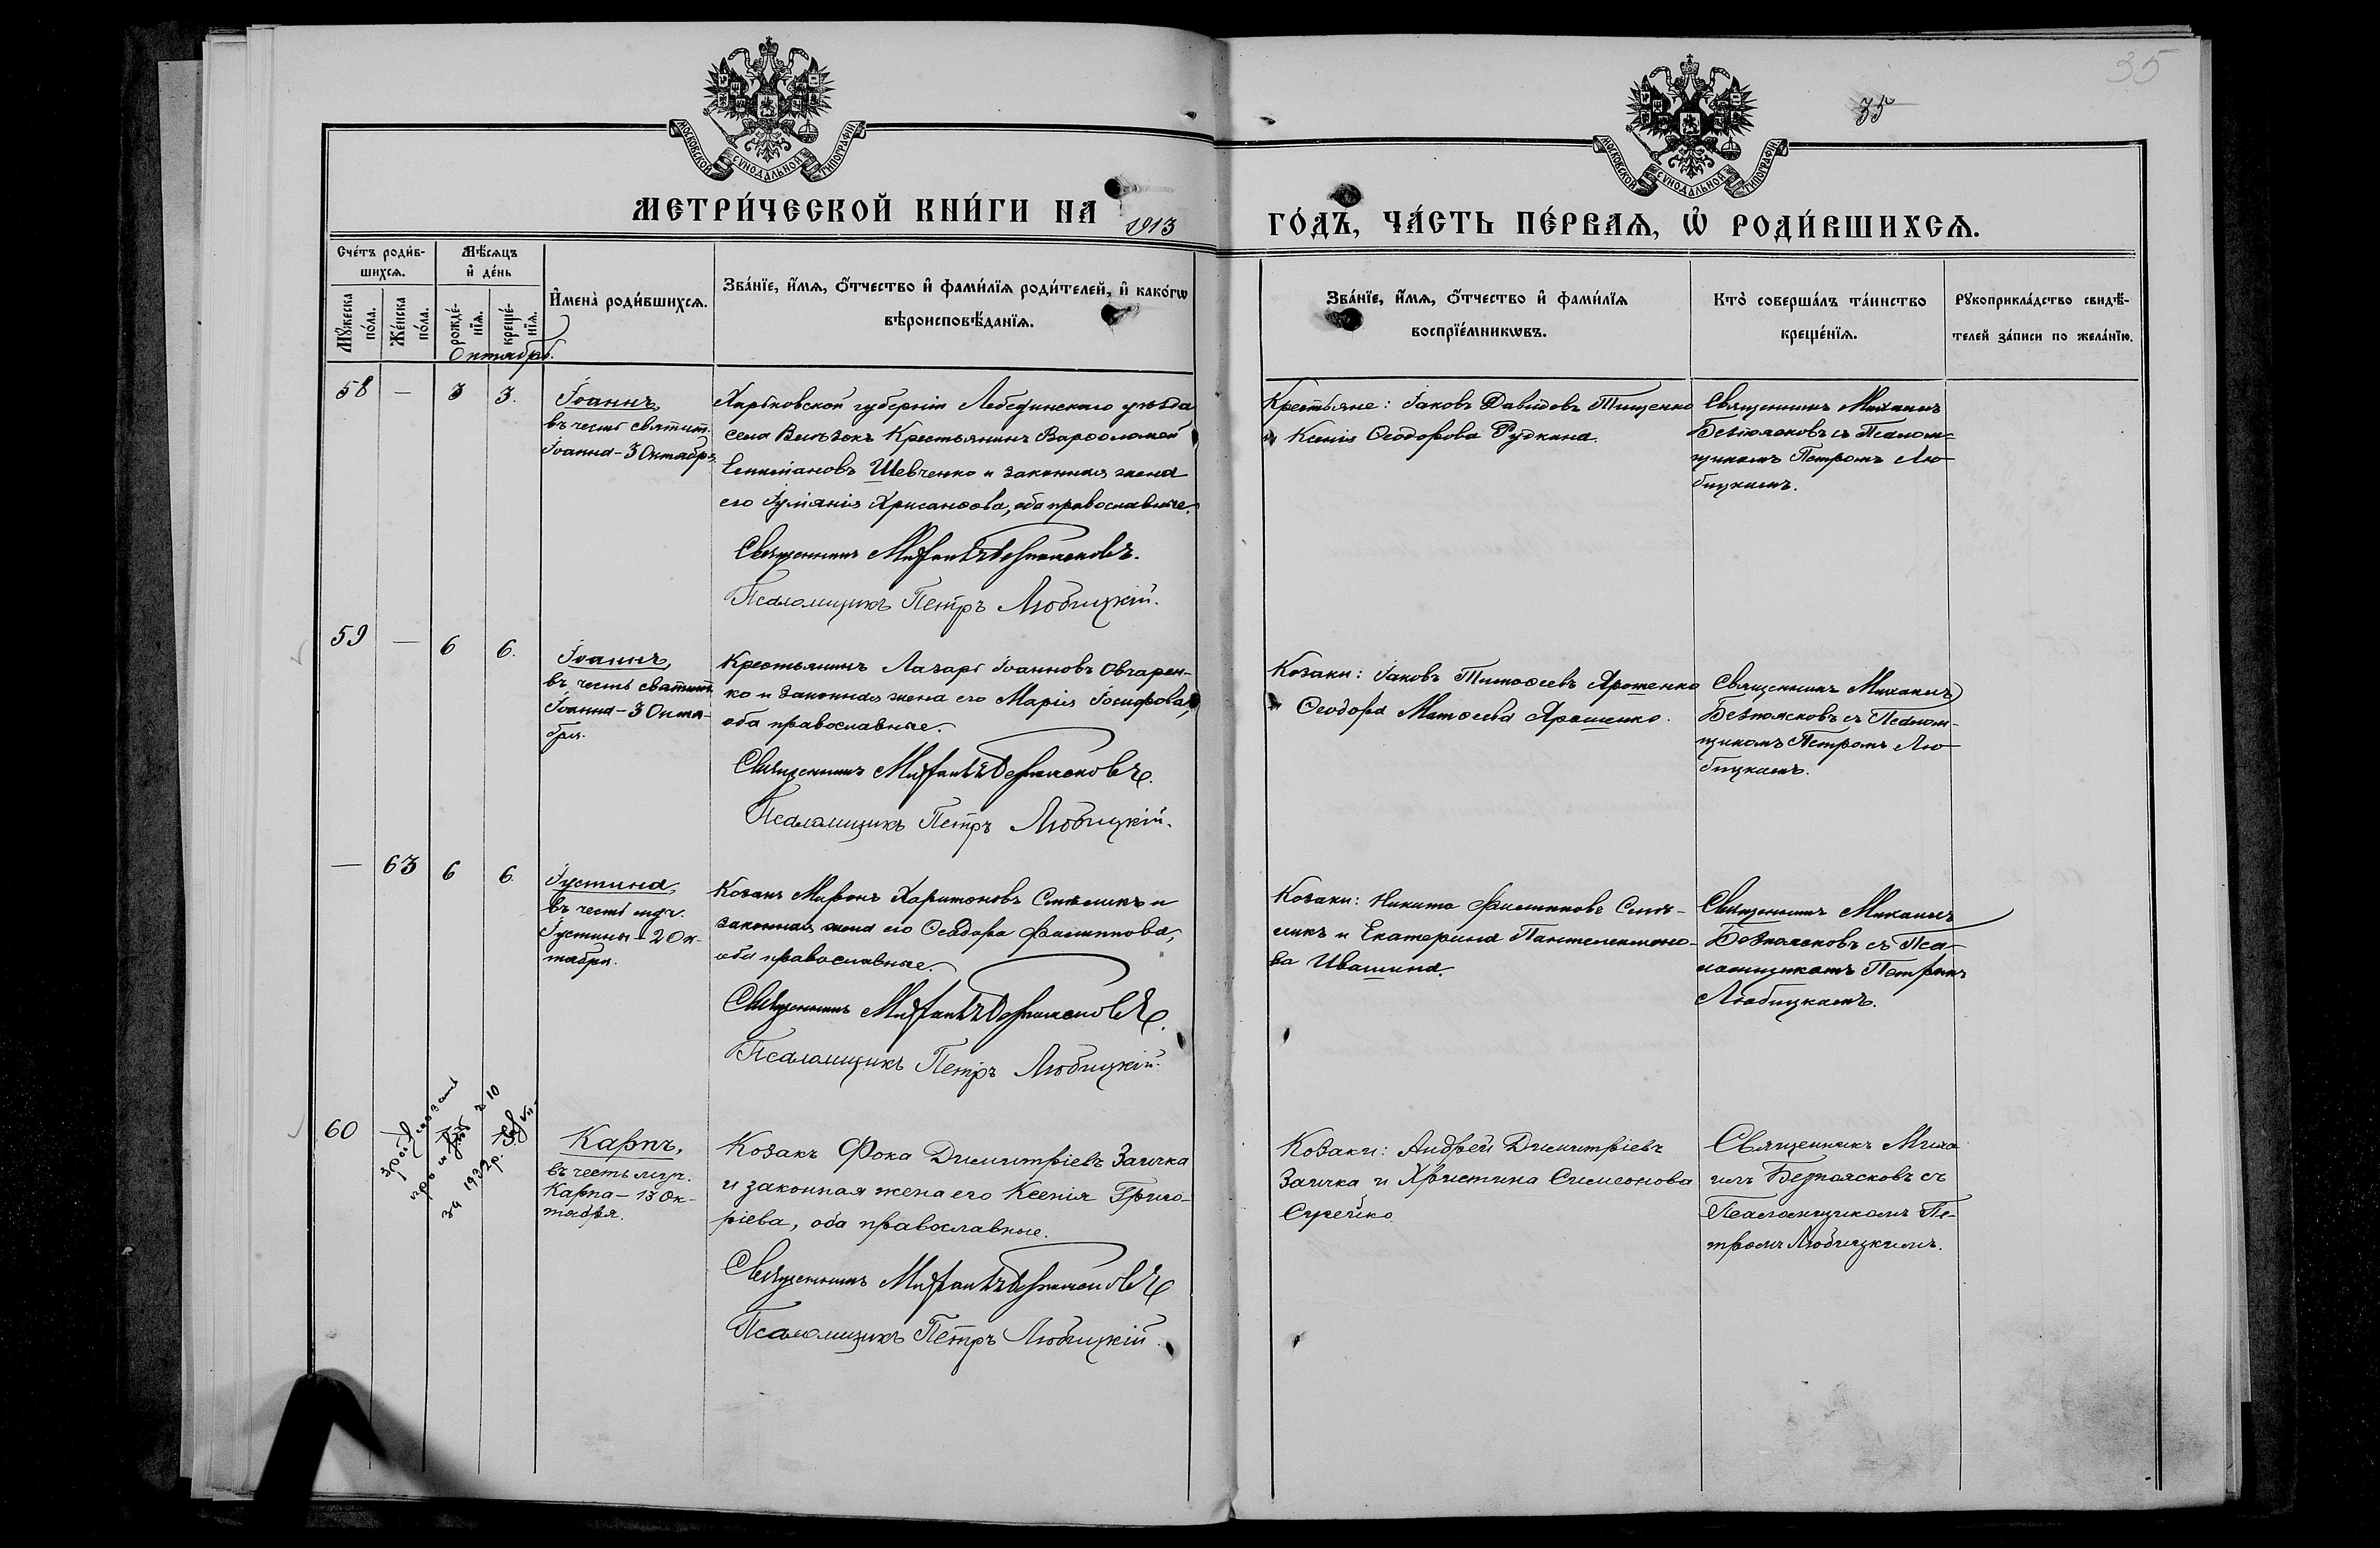 35
35
МОСКОВСКОЙ СѴНОДАЛЬНОЙ ТИПОГРАФІИ
МОСКОВСКОЙ СѴНОДАЛЬНОЙ ТИПОГРАФІИ
МЕТРИ́ЧЕСКОЙ КНИ́ГИ НА 1913 ГО́ДЪ, ЧА́СТЬ ПЕ́РВАЯ, Ѡ РОДИ́ВШИХСЯ.
Сче́тъ роди́в-
шихся.
Мꙋжеска по́ла.
Же́нска по́ла.
Мѣ́сяцъ и де́нь
рожде́-нїя.
креще́-нїя.
И҆мена̀ роди́вшихся.
Зва́нїе, и҆́мя, ѻ҆́тчество и҆ фами́лїя роди́телей, и҆ како́гѡ
вѣроисповѣ́данїя.
Зва́нїе, и҆́мя, ѻ҆́тчество и҆ фами́лїя
воспрїе́мникѡвъ.
Кто̀ соверша́лъ та́инство
креще́нїя.
Рꙋкоприкла́дство свидѣ́-
телей за́писи по жела́нїю.
Октябрь.
58 — 3 3.
Іоаннъ,
въ честь святит.
Іоанна – 3 Октября
Харьковской губерніи Лебединскаго уѣзда
села Крестьянинъ Варѳоломей
Шевченко и законная жена
его Хрисанѳова, оба православные.
Священникъ Михаилъ Безпоясковъ.
Псаломщикъ Петръ Любицкій.
Крестьяне: Іаковъ Давидовъ Тищенко
и Ксенія Ѳеодорова Рудкина.
Священникъ Михаилъ
Безпоясковъ съ Псалом-
щикомъ Петромъ Лю-
бицкимъ.
59 — 6 6.
Іоаннъ,
въ честь святит.
Іоанна – 3 Октя-
бря.
Крестьянинъ Лазарь Іоанновъ Овчарен-
ко и законная жена его Марія Іосифова,
оба православные.
Священникъ Михаилъ Безпоясковъ.
Псаломщикъ Петръ Любицкій.
Козаки: Іаковъ Тимоѳеевъ Ярошенко
и Ѳеодора Матѳеева Ярошенко.
Священникъ Михаилъ
Безпоясковъ съ Псалом-
щикомъ Петромъ Лю-
бицкимъ.
— 63 6 6.
Іустина,
въ честь муч.
Іустины – 2 Ок-
тября.
Козакъ Миронъ Харитоновъ и
законная жена его Ѳеодора Филиппова,
оба православные.
Священникъ Михаилъ Безпоясковъ.
Псаломщикъ Петръ Любицкій.
Козаки: Никита Филипповъ
и Екатерина Пантелеимоно-
ва Ивашина.
Священникъ Михаилъ
Безпоясковъ съ Пса-
ломщикомъ Петромъ
Любицкимъ.
60
за 1932 р.
Карпъ,
въ честь муч.
Карпа – 13 Ок-
тября.
Козакъ Фока Димитріевъ Заичка
и законная жена его Ксенія Григо-
ріева, оба православные.
Священникъ Михаилъ Безпоясковъ
Псаломщикъ Петръ Любицкій.
Козаки: Андрей Димитріевъ
Заичка и Христина Симеонова
Сурейко
Священникъ Миха-
илъ Безпоясковъ съ
Псаломщикомъ Пе-
тромъ Любицкимъ.